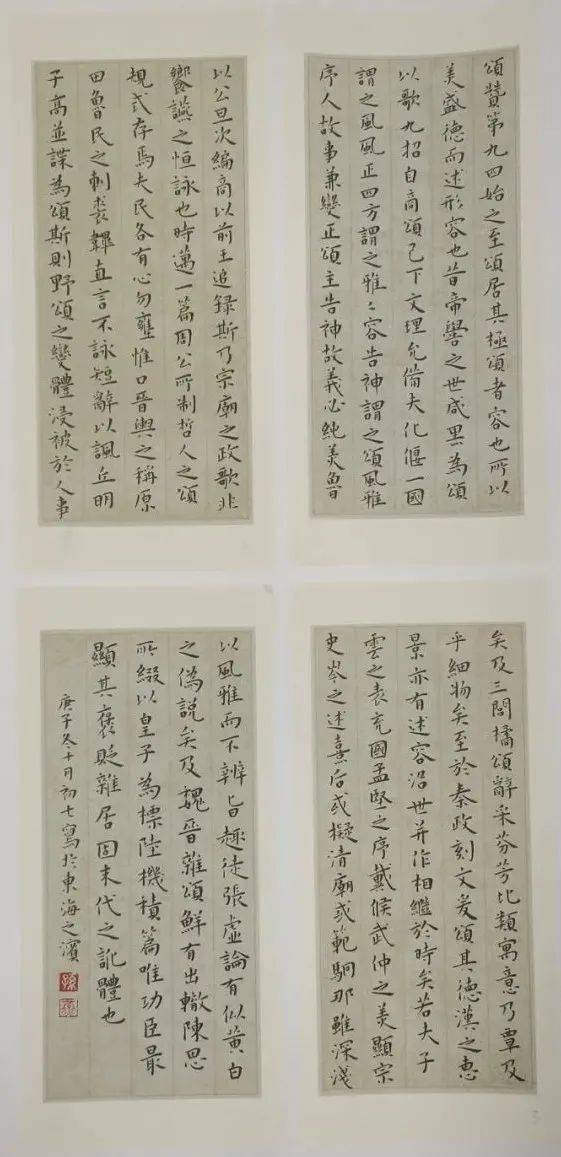 頌贊第九四始之至頌居其極頌者容也所以
美盛德而述形容也昔帝嚳之世咸黑為頌
以歌九招自商頌已下文理允備夫化偃一國
謂之風風正四方謂之雅〻容告神謂之頌風雅
序人故事兼變正頌主告神故義必純美魯
以公旦次編商以前王追録斯乃宗廟之政歌非
饗讌之恒詠也時邁一篇周公所制哲人之頌
規式存焉夫民各有心勿壅惟口晉輿之稱原
田魯民之刺裘鞸直言不詠短辭以諷丘明
子高並諜為頌斯則野頌之變體浸被於人事
矣及三閭橘頌辭采芬芳比類寓意乃覃及
乎細物矣至於秦政刻文爰頌其德漢之惠
景亦有述容沿世并作相繼於時矣若夫子
雲之表充國孟堅之序戴侯武仲之美顯宗
史岑之述熹后或擬清廟或範駉那雖深淺
以風雅而不辨旨趣徒張虛論有似黃白
之偽說矣及魏晉雜頌鮮有出轍陳思
所綴以皇子為標陸機積篇唯功臣最
顯其褒貶雜居固末代之訛體也
庚子冬十月初七寫於東海之濱